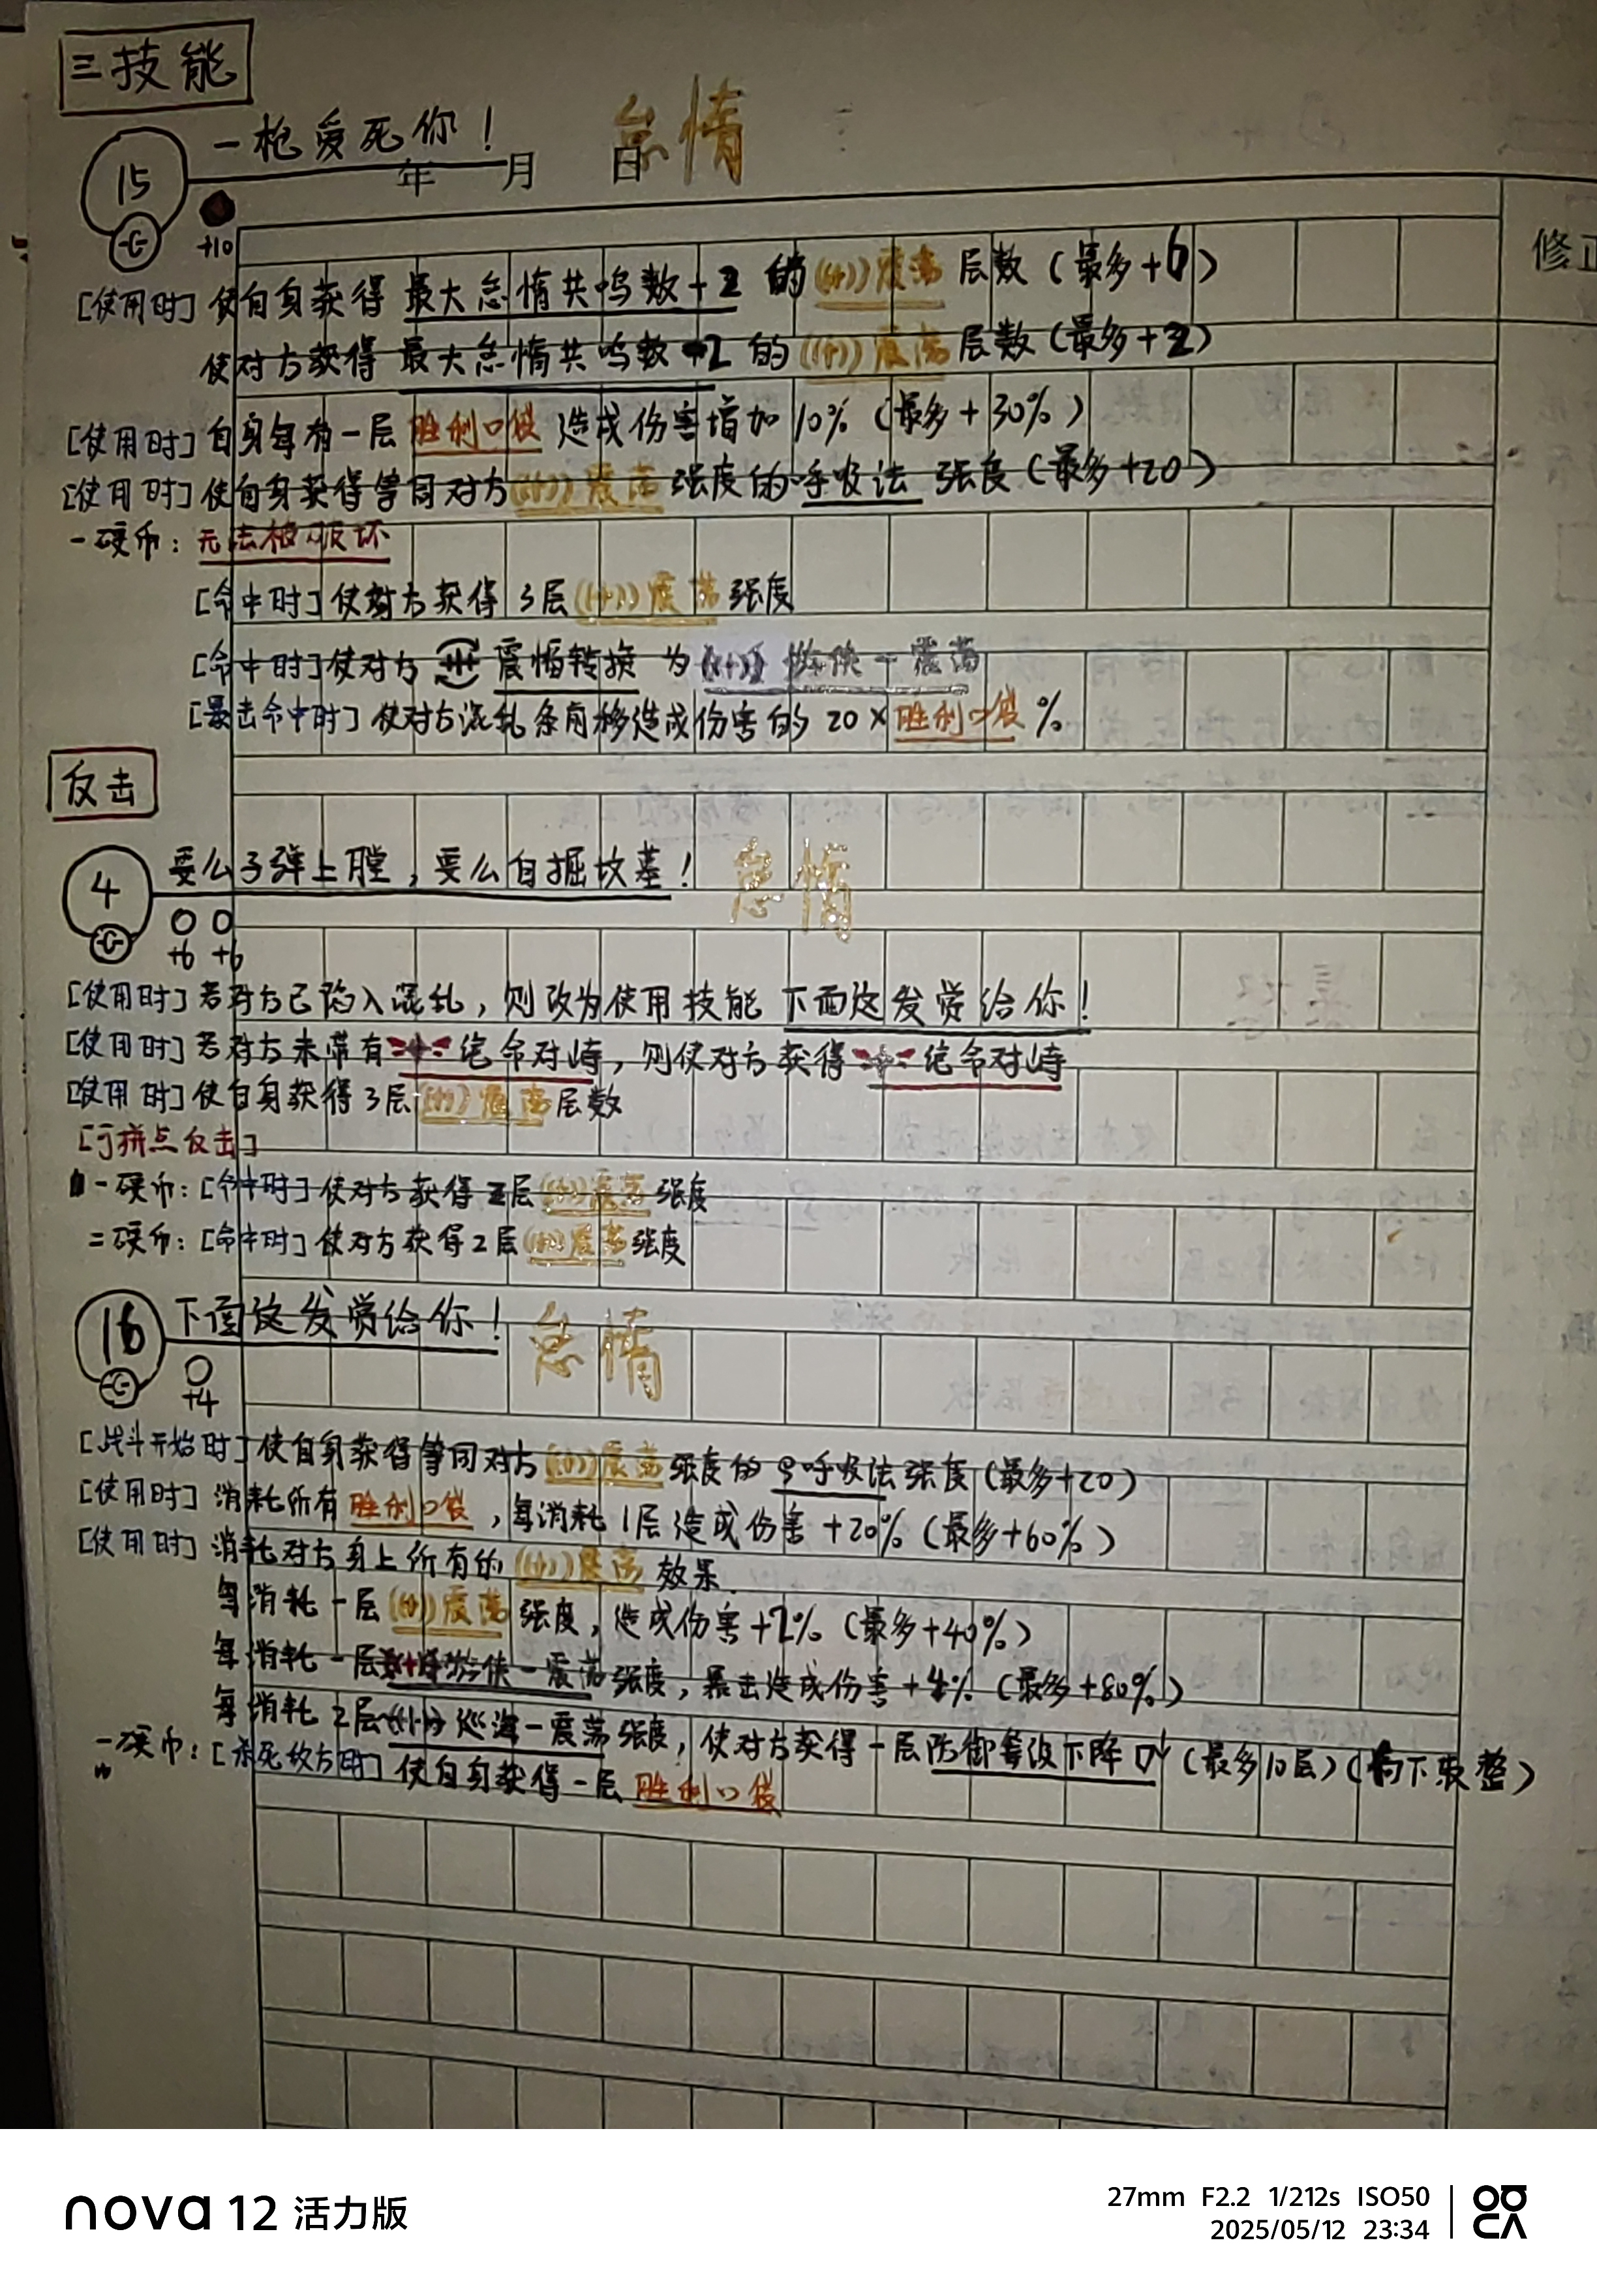 三技能
一枪爱死你！ 怠惰
15
年 月 日
+10
修正
[使用时] 使自身获得 最大怠惰共鸣数+2 的 震荡 层数（最多+6）
使对方获得 最大怠惰共鸣数 2 的 震荡 层数（最多+2）
[使用时] 自身每有一层 胜利口袋 造成伤害增加 10%（最多+30%）
[使用时] 使自身获得等同对方 震荡 强度的 呼吸法 强度（最多+20）
一硬币：无法被破坏
[命中时] 使对方获得 3层 震荡 强度
[命中时] 使对方 震幅转换 为 游侠－震荡
[暴击命中时] 使对方混乱条前移造成伤害的 20×胜利口袋 %
反击
4
要么子弹上膛，要么自掘坟墓！ 怠惰
+6 +6
[使用时] 若对方已陷入混乱，则改为使用技能 下面这发赏给你！
[使用时] 若对方未带有 绝命对峙，则使对方获得 绝命对峙
[使用时] 使自身获得3层 震荡 层数
[可拼点反击]
一硬币：[命中时] 使对方获得2层 震荡 强度
二硬币：[命中时] 使对方获得2层 震荡 强度
16
下面这发赏给你！ 怠惰
+4
[战斗开始时] 使自身获得等同对方 震荡 强度的 呼吸法 强度（最多+20）
[使用时] 消耗所有 胜利口袋，每消耗1层造成伤害+20%（最多+60%）
[使用时] 消耗对方身上所有的 震荡 效果.
每消耗一层 震荡 强度，造成伤害+2%（最多+40%）
每消耗一层 游侠－震荡 强度，暴击造成伤害+4%（最多+80%）
每消耗2层 巡海－震荡 强度，使对方获得一层防御等级下降（最多10层）（向下取整）
一硬币：[杀死敌方时] 使自身获得一层 胜利口袋
nova 12 活力版
27mm F2.2 1/212s ISO50
2025/05/12 23:34